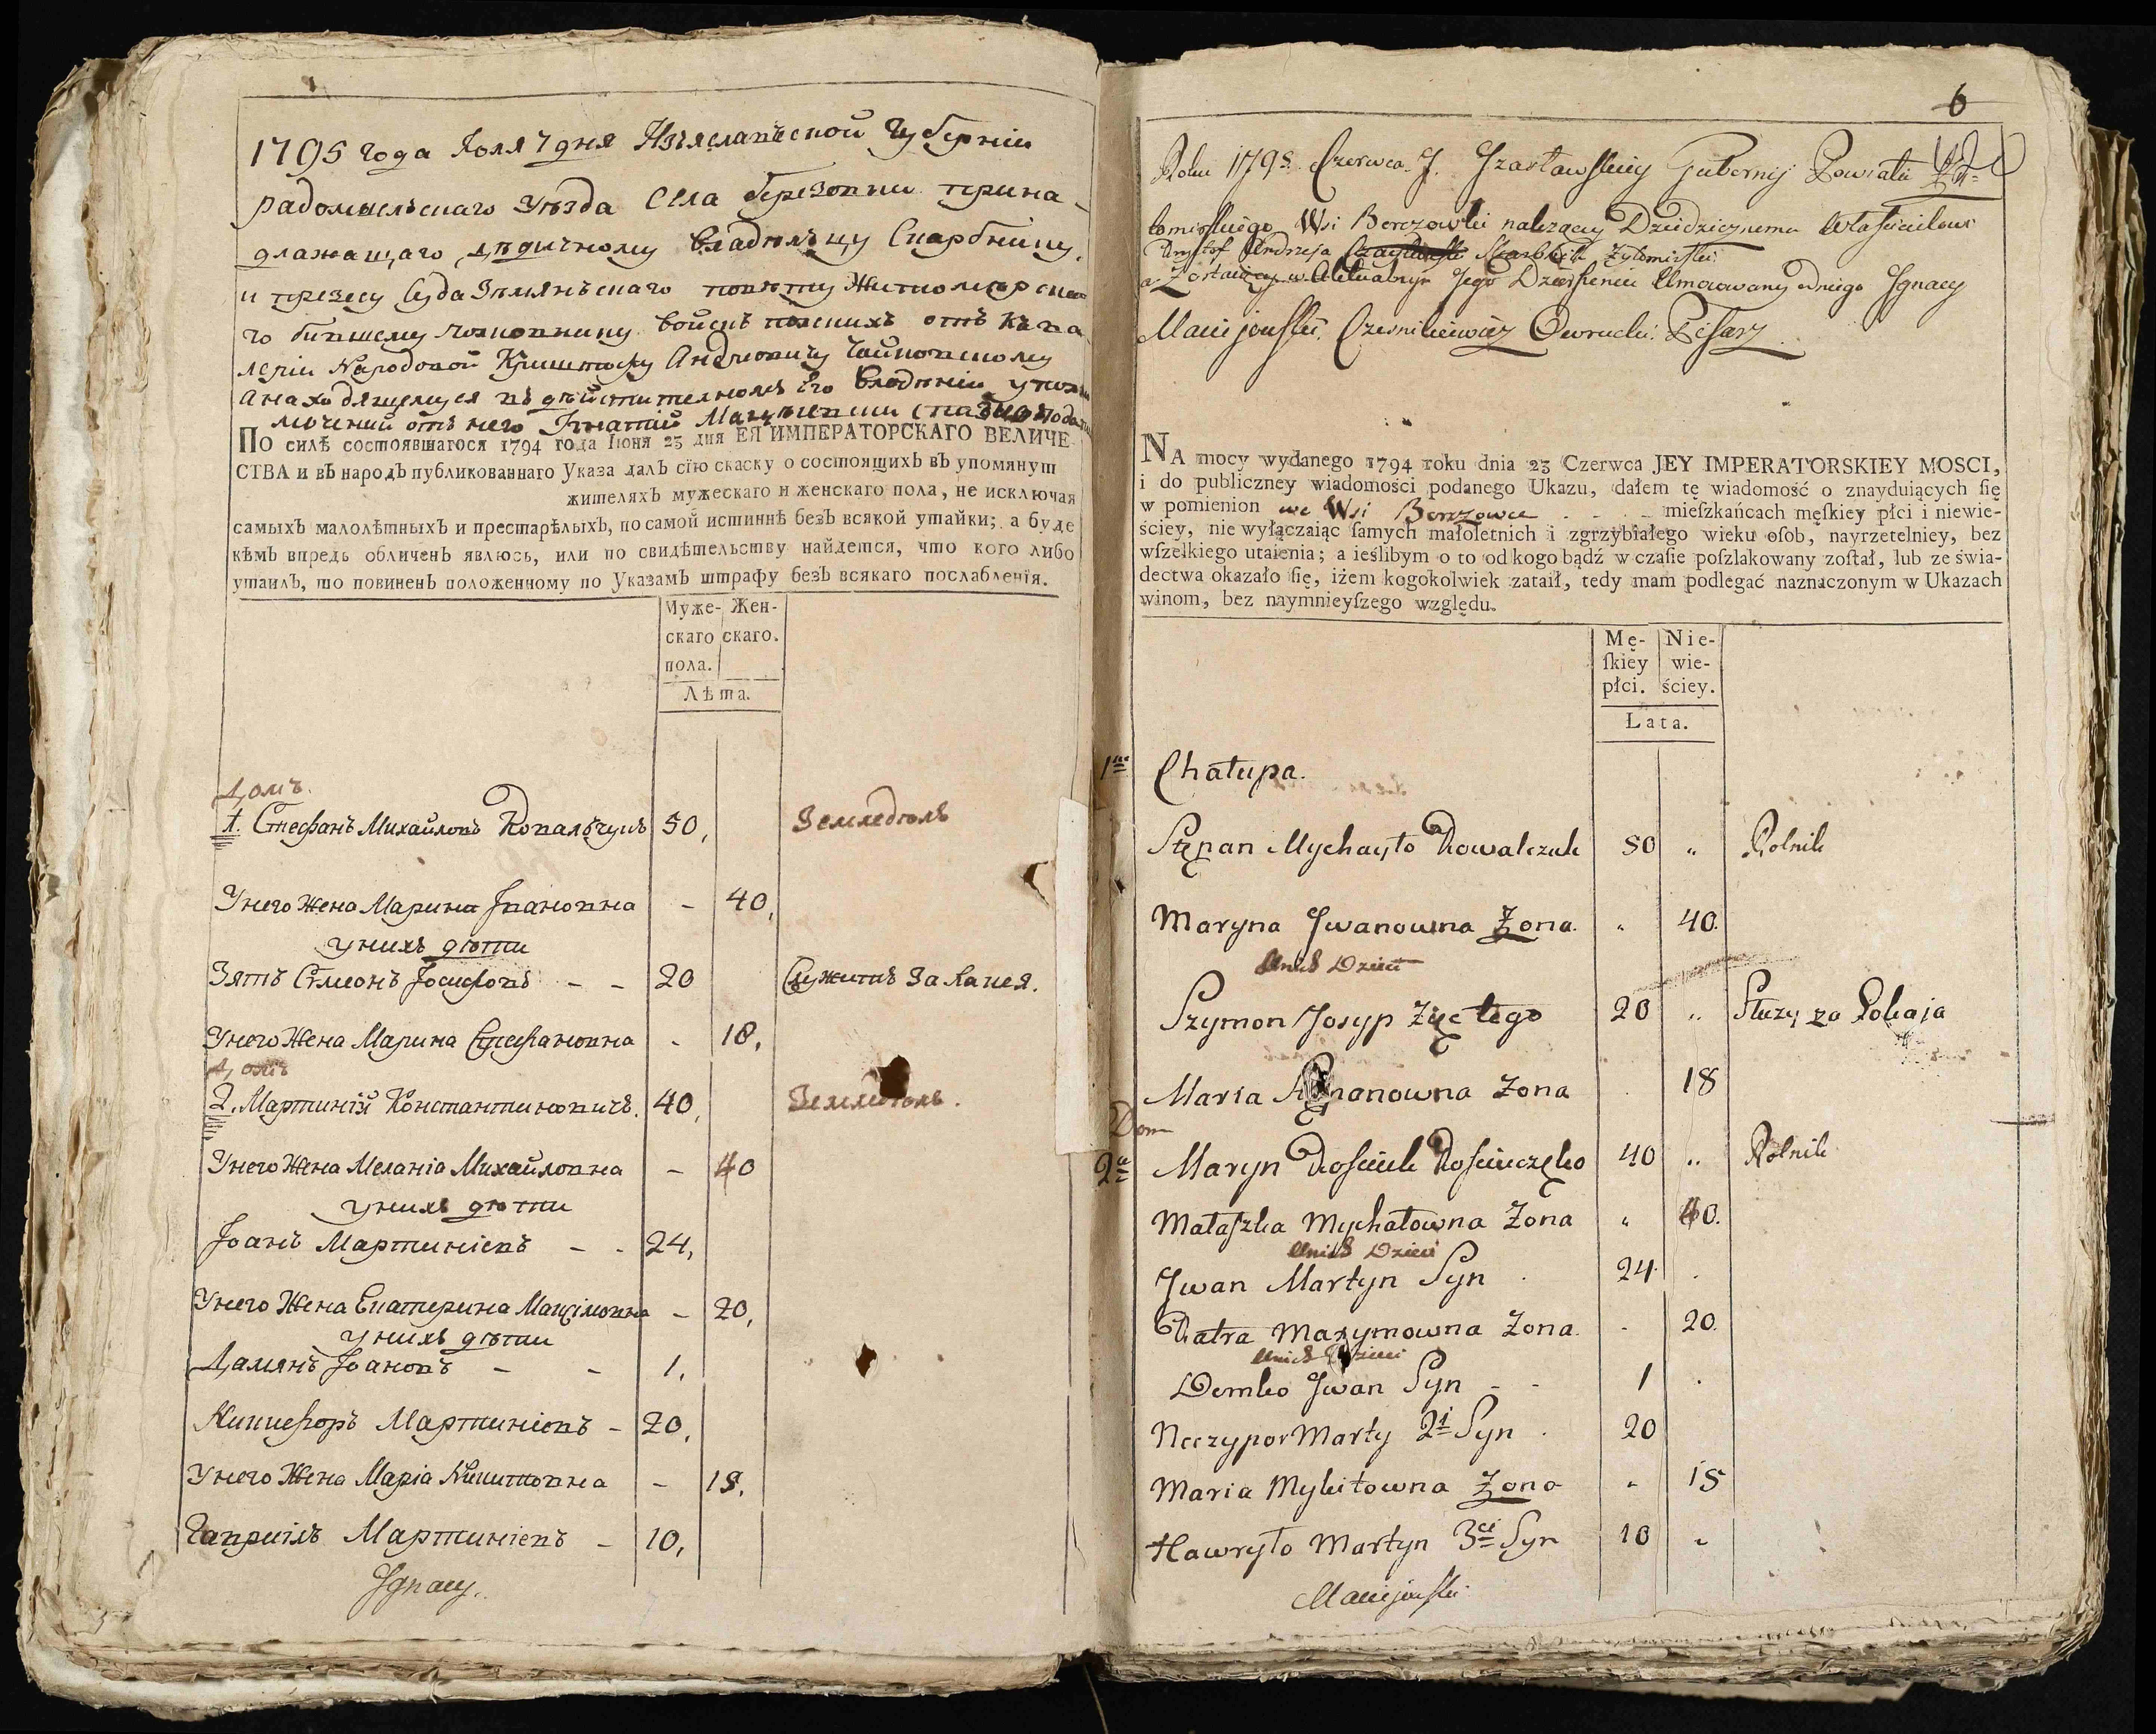 1795 года Июля 7 дня Изяславской Губерніи
радомысльскаго Уѣзда Села березовки прина-
длежащаго дѣдичному владѣльцу Скарбнику
и презесу Суда Земянъскаго повѣту Житомирска
го бывшему полковнику войскъ полскихъ отъ Кава
леріи Народовой Криштофу Андреевичу
а находящемуся въ дѣйствителномъ Его владѣніи упол
моченій отъ него Игнатій
ПО силѣ состоявшагося 1794 года Іюня 23 дня ЕЯ ИМПЕРАТОРСКАГО ВЕЛИЧЕ-
СТВА и въ народъ публикованнаго Указа далъ сїю скаску о состоящихъ въ упомянут
жителяхъ мужескаго и женскаго пола, не исключая
самыхъ малолѣтныхъ и престарѣлыхъ, по самой истиннѣ безъ всякой утайки; а буде
кѣмъ впредь обличенъ явлюсь, или по свидѣтельству найдется, что кого либо
утаилъ, то повиненъ положенному по Указамъ штрафу безъ всякаго послабленїя.
Муже- Жен-
скаго скаго.
пола.
Лѣта.
Домъ.
1. Стефанъ Михайловъ Ковальчукъ 50, Земледѣлъ
Унего Жена Марина Івановна - 40,
унихъ дѣти
Зять Сѣмеонъ Іосифовъ - - 20 Служитъ за Какея.
Унего Жена Марина Стефановна - 18,
Домъ
2. Мартиній Константиновичъ. 40, Земледѣлъ.
Унего Жена Меланіа Михайловна - 40
унихъ дѣти
Іоанъ Мартиніевъ - - 24,
Унего Жена Екатерина Маѯімовна - 20,
унихъ дѣти
Дамянъ Іоановъ - - 1,
Никифоръ Мартиніевъ - 20,
Унего Жена Маріа Никитовна - 18,
Гавріилъ Мартиніевъ - 10,
Ignacy.
6
Roku 1795 Czerwca 7. Izasławskiey Gubernij Powiatu
tomiskiego Wsi Berezowki nalezącey Dziedzicznemu Właścicielowi
Krysztof Andrzeja Skarbnik Zytomirski
a Zostaiący w Aktualnym Jego Dzierżeniu Umocowany odniego Ignacy
Maciejowski. Czesnikiewicz Owrucki. Pisarz
NA mocy wydanego 1794 roku dnia 23 Czerwca JEY IMPERATORSKIEY MOSCI,
i do publiczney wiadomości podanego Ukazu, dałem tę wiadomość o znayduiących ſię
w pomienion we Wsi Berezowce - - - mieſzkańcach męſkiey płci i niewie-
ściey, nie wyłączaiąc ſamych małoletnich i zgrzybiałego wieku oſob, nayrzetelniey, bez
wſzelkiego utaienia; a ieślibym o to od kogo bądź w czaſie poſzlakowany zoſtał, lub ze świa-
dectwa okazało ſię, iżem kogokolwiek zataił, tedy mam podlegać naznaczonym w Ukazach
winom, bez naymnieyſzego względu.
Mę- Nie-
ſkiey wie-
płci. ściey.
Łata.
1sza Chałupa.
Stępan Mychayło Kowalczuk 50 „ Rolnik
Maryna Iwanowna Żona. „ 40.
Unich Dzieci
Szymon Josyp Zięć tego 20 „ Służy za Lokaja
Maria Stepanowna Żona . 18
Dom
2a Maryn Kosciuk Kosciuczęko 40 „ Rolnik
Małaszka Mychałowna Żona „ 40.
Unich Dzieci
Jwan Martyn Syn . 24. .
Katra Maxymowna Żona. - 20.
Unich Dzieci
Demko Jwan Syn - - 1 .
Neczypor Marty 2i Syn . 20
Maria Mykitowna Żona „ 18
Hawryło Martyn 3ci Syn 10 „
Maciejowski